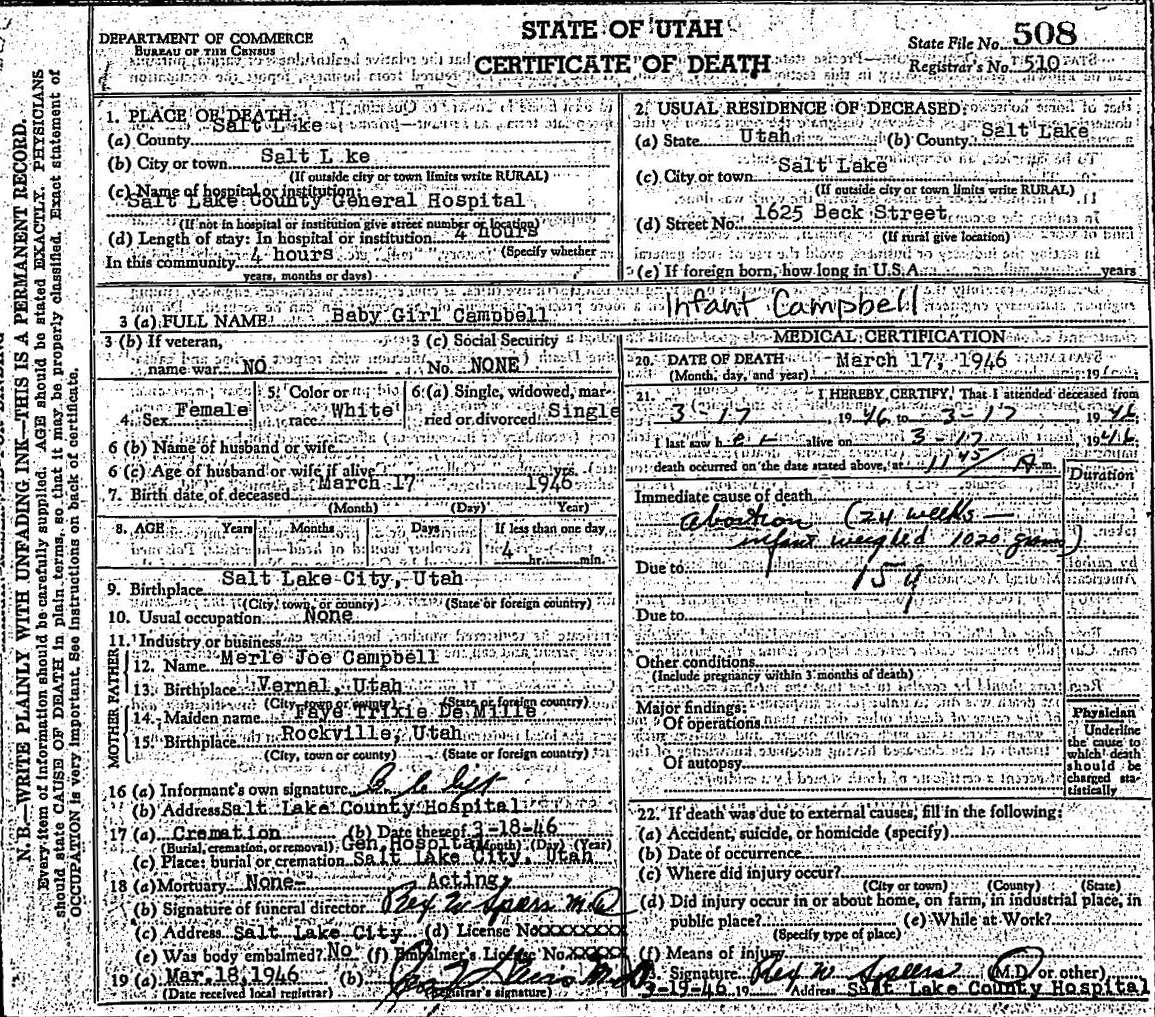 STATE OF UTAH
CERTIFICATE OF DEATH
DEPARTMENT OF COMMERCE
BUREAU OF THE CENSUS
State File No. 508
Registrar's No. 510
N. B.—WRITE PLAINLY WITH UNFADING INK—THIS IS A PERMANENT RECORD.
Every item of information should be carefully supplied. AGE should be stated EXACTLY. PHYSICIANS
should state CAUSE OF DEATH in plain terms, so that it may be properly classified. Exact statement of
OCCUPATION is very important. See instructions on back of certificate.
1. PLACE OF DEATH:
(a) County Salt Lake
(b) City or town Salt L ke
(If outside city or town limits write RURAL)
(c) Name of hospital or institution:
Salt Lake County General Hospital
(If not in hospital or institution give street number or location)
(d) Length of stay: In hospital or institution 4 hours
(Specify whether
In this community 4 hours
years, months or days)
2. USUAL RESIDENCE OF DECEASED:
(a) State Utah (b) County Salt Lake
(c) City or town Salt Lake
(If outside city or town limits write RURAL)
(d) Street No. 1625 Beck Street
(If rural give location)
(e) If foreign born, how long in U.S.A. years
3 (a) FULL NAME Baby Girl Campbell Infant Campbell
3 (b) If veteran,
name war NO
3 (c) Social Security
No. NONE
4. Sex Female
5. Color or
race White
6 (a) Single, widowed, mar-
ried or divorced Single
6 (b) Name of husband or wife
6 (c) Age of husband or wife if alive yrs.
7. Birth date of deceased March 17 1946
(Month) (Day) Year)
8. AGE Years Months Days If less than one day
4 hr. min.
9. Birthplace Salt Lake City, Utah
(City, town, or county) (State or foreign country)
10. Usual occupation None
11. Industry or business
FATHER
12. Name Merle Joe Campbell
13. Birthplace Vernal, Utah
(City, town or county)
MOTHER
14. Maiden name Faye Trixie De Mille
15. Birthplace Rockville, Utah
(City, town or county) (State or foreign country)
16 (a) Informant's own signature
(b) Address Salt Lake County Hospital
17 (a) Cremation (b) Date thereof 3-18-46
(Burial, cremation, or removal) (Month) (Day) (Year)
Gen. Hospital
(c) Place: burial or cremation Salt Lake City, Utah
18 (a) Mortuary None- Acting
(b) Signature of funeral director Rex W Speers M.D
(c) Address Salt Lake City (d) License No XXXXXXXX
(e) Was body embalmed? No (f) Embalmer's License No. XXXXX
19 (a) Mar.18,1946 (b)
(Date received local registrar) (Registrar's signature)
MEDICAL CERTIFICATION
20. DATE OF DEATH March 17, 1946
(Month, day, and year) 19
21. I HEREBY CERTIFY, That I attended deceased from
3-17 1946 to 3-17 1946
I last saw h er alive on 3-17 1946
death occurred on the date stated above, at 11 45 A m.
Duration
Immediate cause of death
abortion (24 weeks —
infant weighed 1020 grams)
Due to 159
Due to
Other conditions
(Include pregnancy within 3 months of death)
Major findings:
Of operations
Of autopsy
Physician
Underline
the cause to
which death
should be
charged sta-
tistically
22. If death was due to external causes, fill in the following:
(a) Accident, suicide, or homicide (specify)
(b) Date of occurrence
(c) Where did injury occur?
(City or town) (County) (State)
(d) Did injury occur in or about home, on farm, in industrial place, in
public place? (e) While at Work?
(Specify type of place)
(f) Means of injury
Signature Rex W Speers (M.D or other)
3-19-46 19 Address Salt Lake County Hospital